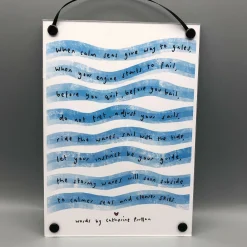 When calm seas give way to gales,
When your engine starts to fail,
before you quit, before you bail
do not fret, adjust your sails,
ride the waves, sail with the tide,
let your instinct be your guide,
the stormy waves will soon subside
to calmer seas and clearer skies
words by Catharine